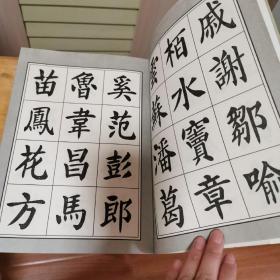 戚謝鄒喻
柏水竇章
蘇潘葛
奚范彭郎
魯韋昌馬
苗鳳花方